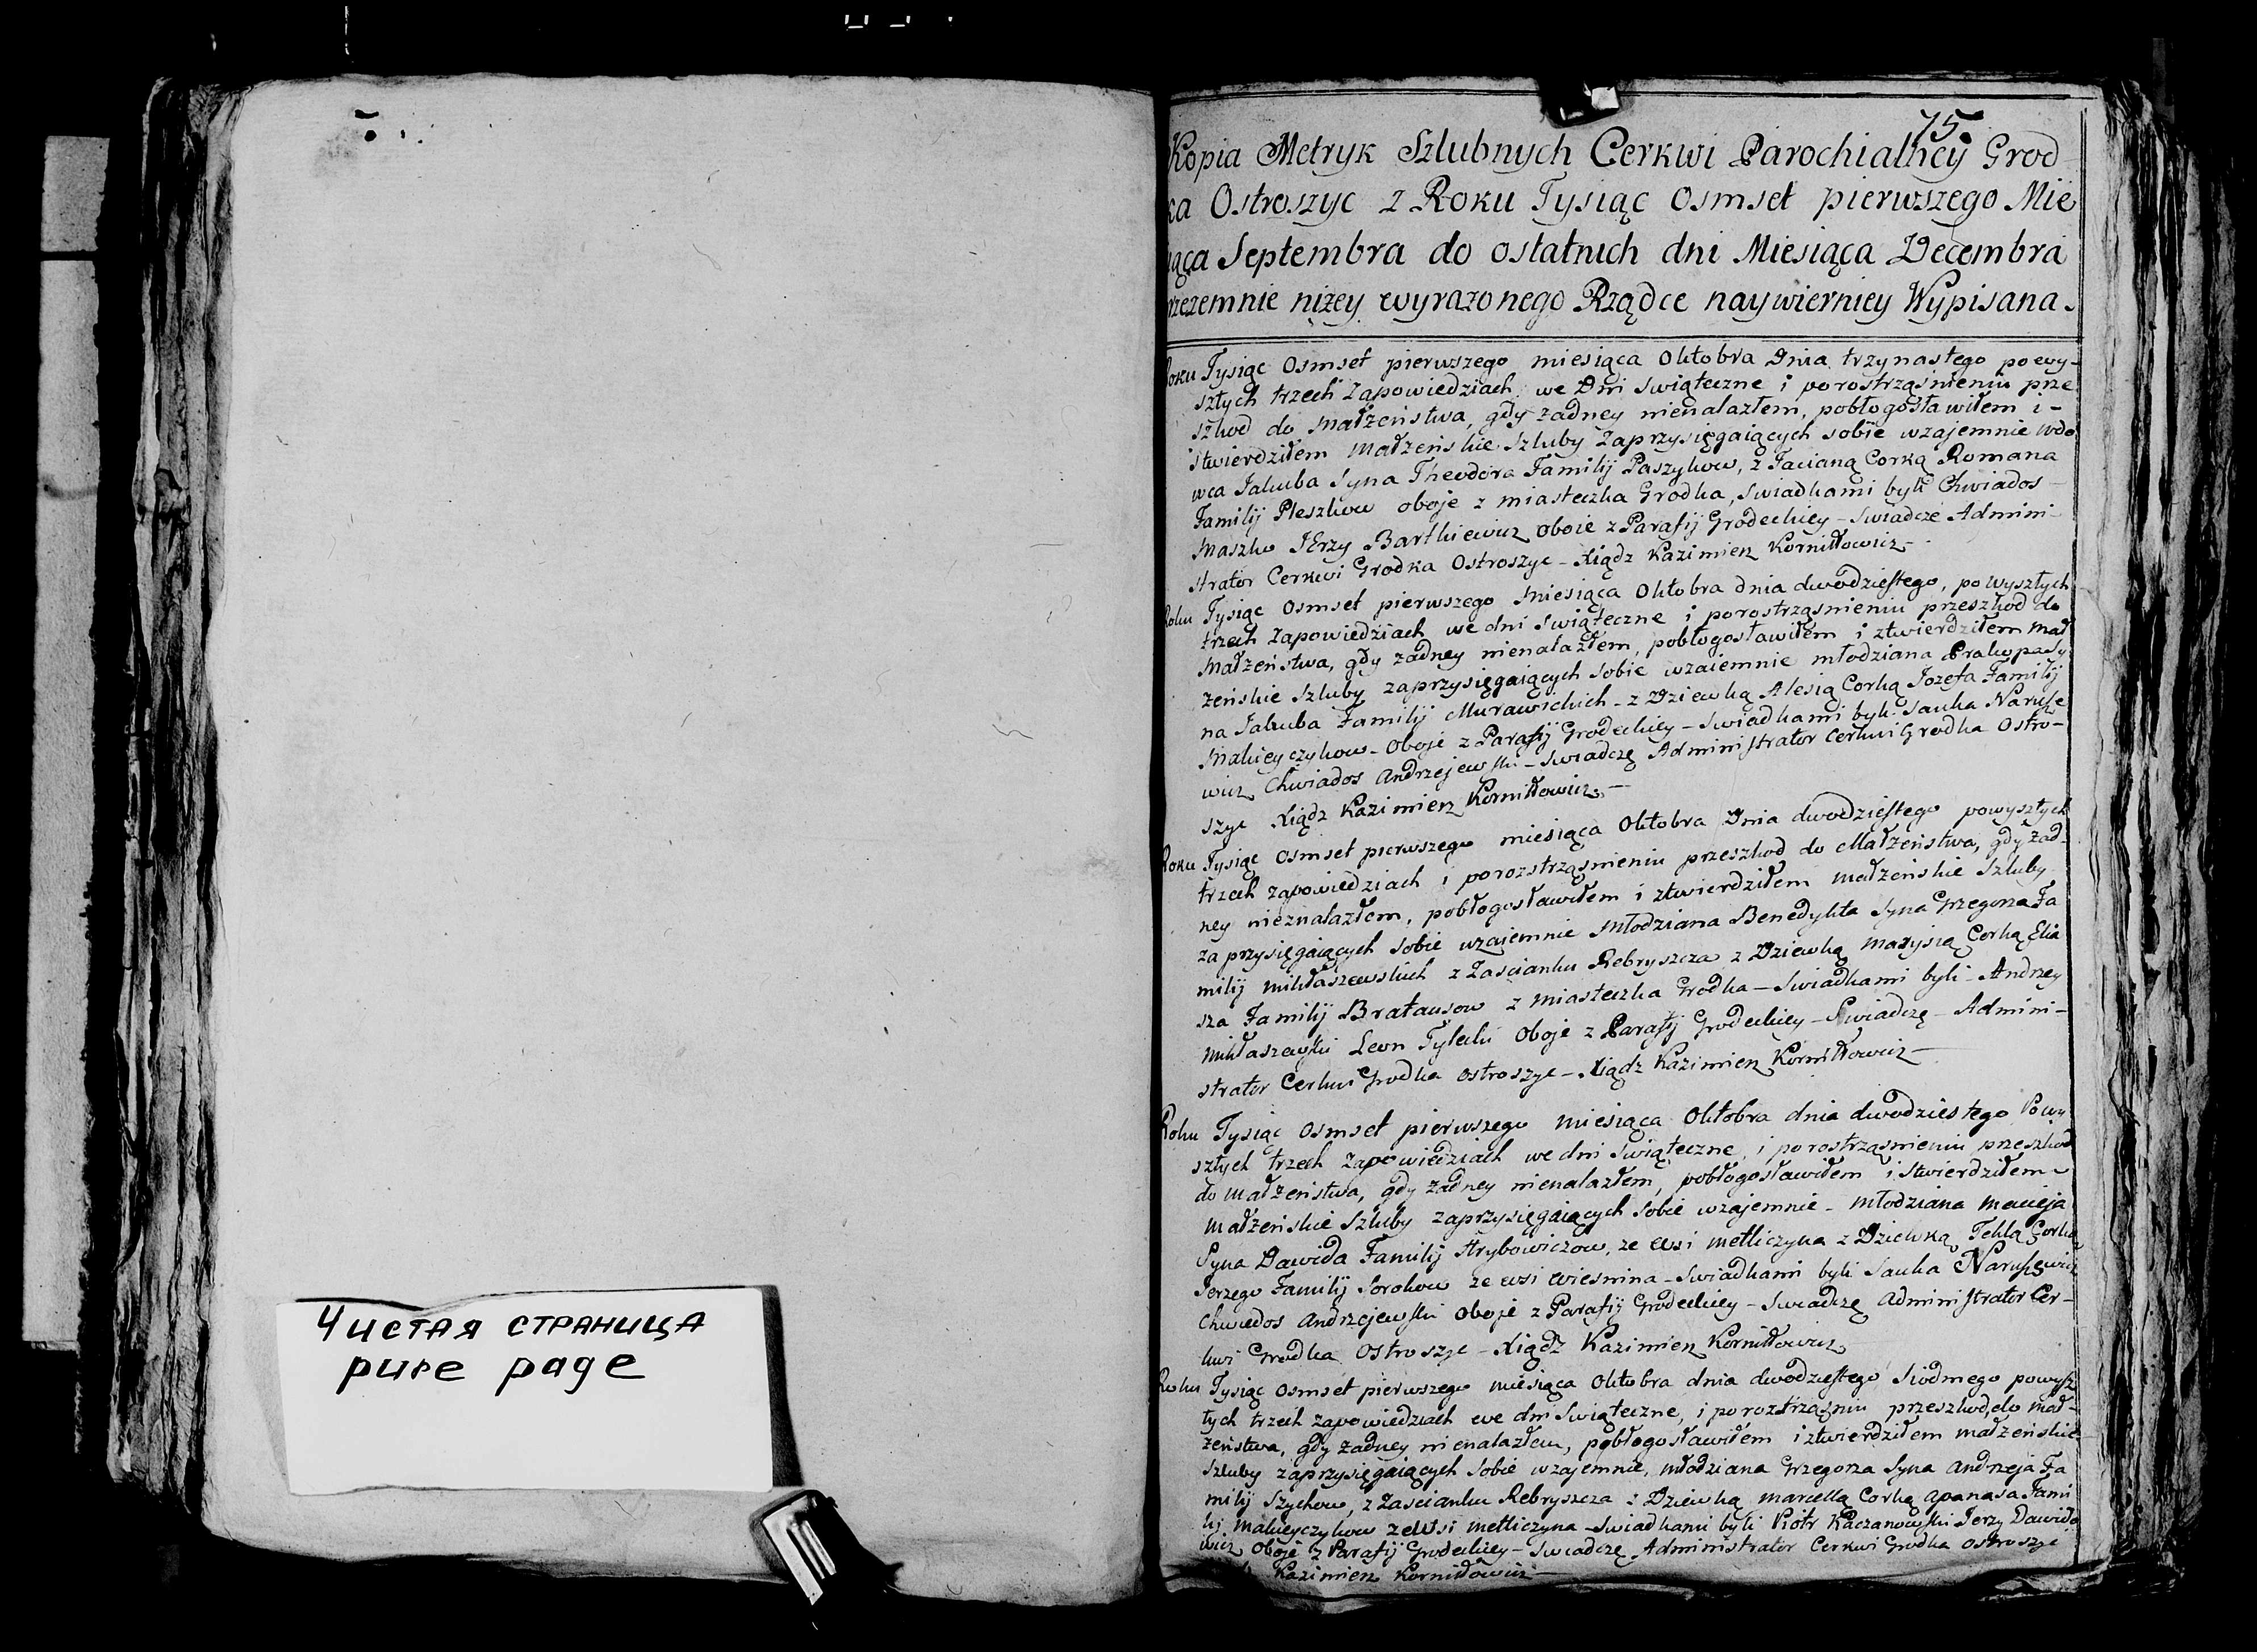 Чистая страница
pure page
75.
Kopia Metryk Szlubnych Cerkwi Parochialney Grod
ka Ostroszyc z Roku Tysiąc Osmset pierwszego Mie
iąca Septembra do ostatnich dni Miesiąca Decembra
rzezemnie niżey wyrazonego Rządce naywierniey Wypisana.
oku Tysiąc Osmset pierwszego miesiąca Oktobra Dnia trzynastego powy-
szłych trzech Zapowiedziach we Dni Swiąteczne i porostrząsnieniu prze
szkod do Małżeństwa, gdy zadney nienalazłem, pobłogosławiłem i-
stwierdziłem Małżeńskie Szluby Zaprzysięgaiących sobie wzajemnie wdo
wca Jakuba Syna Theodora Familij Paszykow, z Tacianą Corką Romana
Familij Pleszkow oboje z miasteczka Grodka, Swiadkami byli Chwiados-
Maszko JErzy Bartkiewicz Oboie z Parafij Grodeckiey - Swiadczę Admini-
strator Cerkwi Grodka Ostroszyc - Xiądz Kazimierz Korniłłowicz
Roku Tysiąc Osmset pierwszego Miesiąca Oktobra dnia dwodziestego, powyszłych
trzech Zapowiedziach we dni swiąteczne i porostrząsnieniu przeszkod do
Małżeństwa, gdy zadney nienalazłem, pobłogosławiłem i ztwierdziłem Mał
żeńskie Szluby zaprzysięgaiących sobie wzaiemnie młodziana Prakopa Sy
na Jakuba Familij Murawickich - z Dziewką Alesią Corką Jozefa Familij
Makieyczykow - Oboje z Parafij Grodeckiey - Swiadkami byli Sauka Naruße
wicz Chwiados Andrzejewski - Swiadczę Administrator Cerkwi Grodka Ostro-
szyc Xiądz Kazimierz Korniłłowicz. -
Roku Tysiąc Osmset pierwszego miesiąca Oktobra Dnia dwodziestego powyszłych
trzech zapowiedziach i porozstrząsnieniu przeszkod do Małżeństwa, gdy żad-
ney nieznalazłem, pobłogosławiłem i ztwierdziłem małżeńskie Szluby
zaprzysięgaiących sobie wzajemnie Młodziana Benedykta Syna Grzegorza Fa
milij Mikłaszewskich z Zascianku Rebryszcza z Dziewką Marysią Corką Elia
sza Familij Bratausow z Miasteczka Grodka - Swiadkami byli - Andrzey
Mikłaszewski Leon Tylecki Oboje z Parafij Grodeckiey - Swiadczę - Admini-
strator Cerkwi Grodka Ostroszyc - Xiądz Kazimierz Korniłłowicz -
Roku Tysiąc Osmset pierwszego Miesiąca Oktobra dnia dwodziestego Powy
szłych trzech Zapowiedziach we dni Swiąteczne, i porostrząsnieniu przeszkod
do Małżeństwa, gdy żadney nienalazłem, pobłogosławiłem i Stwierdziłem -
Małżeńskie Szluby zaprzysięgaiących Sobie wzajemnie - młodziana Macieja
Syna Dawida Familij Hrybowiczow, ze wsi Metliczyna z Dziewką Teklą Corką
Jerzego Familij Sorokow ze wsi Wiesnina - Swiadkami byli Sauka Narußewicz
Chwiedos Andrzejewski Oboje z Parafij Grodeckiey - Swiadczę Administrator Cer-
kwi Grodka Ostroszyc - Xiądz Kazimierz Korniłłowicz
Roku Tysiąc Osmset pierwszego Miesiąca Oktobra dnia dwodziestego Siodmego powysz
łych trzech zapowiedziach we dni Swiąteczne, i porozstrząsniu przeszkod, do Mał-
żeństwa, gdy żadney nienalazłem, pobłogosławiłem i ztwierdziłem małżeńskie
Szluby zaprzysięgaiących Sobie wzajemnie, młodziana Grzegorza Syna Andrzeja Fa
milij Szychow, z Zascianku Rebryszcza z Dziewką Marcellą Corką Apanasa Fami
lij Makieyczykow ze Wsi Metliczyna - Swiadkami byli Piotr Kaczanowski Jerzy Dawido
wicz Oboje z Parafij Grodeckiey - Swiadczę Administrator Cerkwi Grodka Ostroszyc
Kazimierz Korniłłowicz -